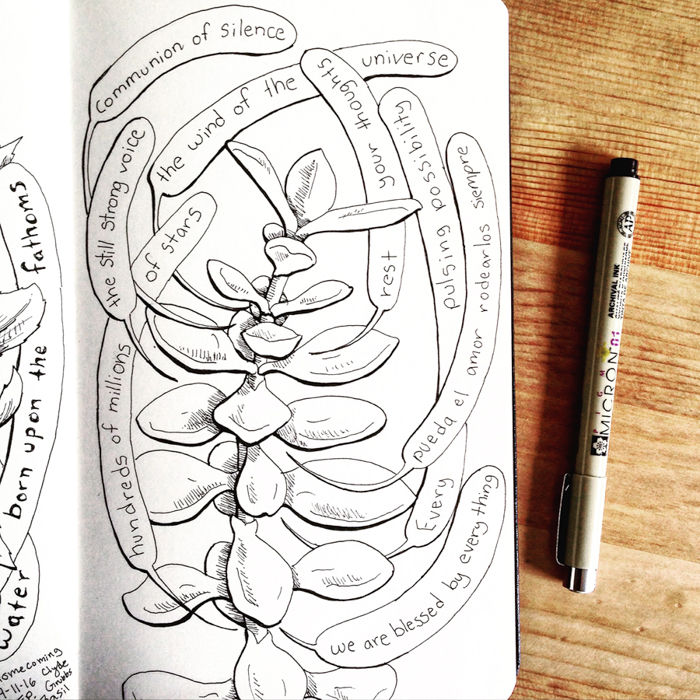 communion of silence
the wind of the universe
your thoughts rest
Every pulsing possibility
pueda el amor rodearlos siempre
the still strong voice
of stars
hundreds of millions
we are blessed by everything
fathoms
born upon the
water
Homecoming
-11-16 Clyde
Grubbs
Basil
ARCHIVAL INK
PIGMA
MICRON 01